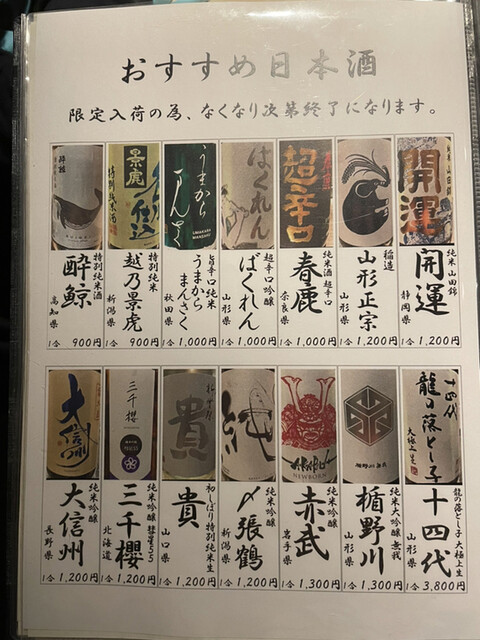 おすすめ日本酒
限定入荷の為、なくなり次第終了になります。
開運
超辛口
はくれん
うまから
まんさく
UMAKARA
MANSAKU
景虎
名水仕込
特別純米酒
酔鯨
純米 山田錦
開運
静岡県
1合 1,200円
稲造
山形正宗
山形県
1合 1,200円
純米酒 超辛口
春鹿
奈良県
1合 1,000円
超辛口吟醸
ばくれん
山形県
1合 1,000円
旨辛口純米
うまから
まんさく
秋田県
1合 1,000円
特別純米
越乃景虎
新潟県
1合 900円
特別純米酒
酔鯨
高知県
1合 900円
十四代
龍の落とし子
大極上生
純
AKABU
NEWBORN
貴
三千櫻
大信州
龍の落とし子 大極上生
十四代
山形県
1合 3,800円
純米大吟醸 無我
楯野川
山形県
1合 1,300円
純米吟醸
赤武
岩手県
1合 1,300円
純米吟醸
〆張鶴
新潟県
1合 1,200円
初しぼり特別純米生
貴
山口県
1合 1,200円
純米吟醸 彗星55
三千櫻
北海道
1合 1,200円
純米吟醸
大信州
長野県
1合 1,200円